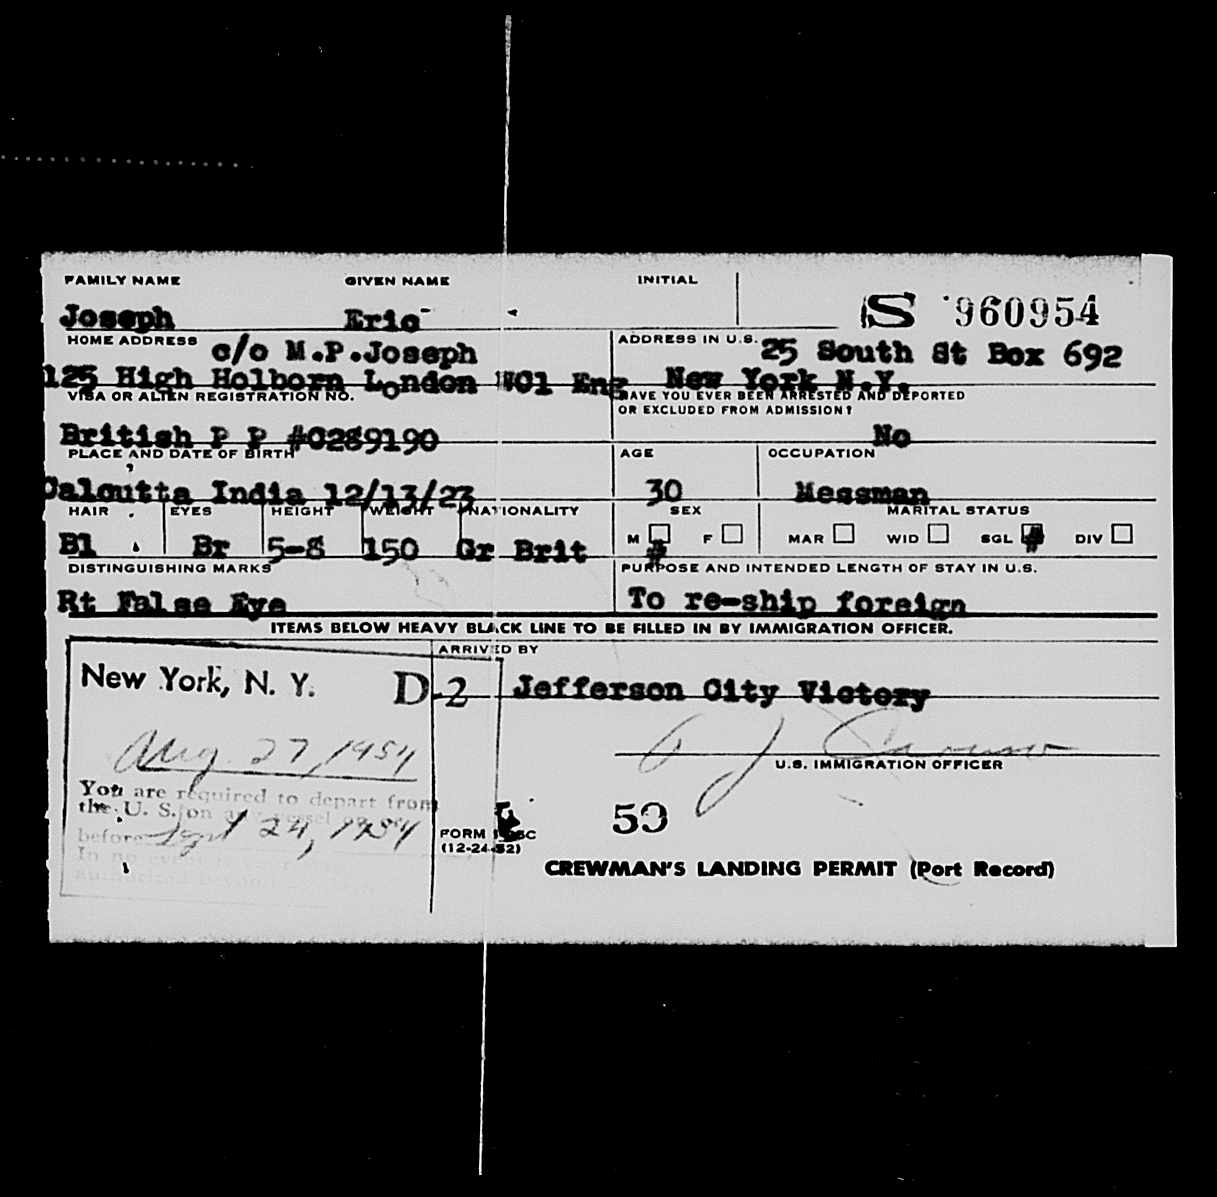 FAMILY NAME GIVEN NAME INITIAL
Joseph Eric S 960954
HOME ADDRESS c/o M.P.Joseph ADDRESS IN U.S. 25 South St Box 692
125 High Holborn London WC1 Eng New York N.Y.
VISA OR ALIEN REGISTRATION NO. HAVE YOU EVER BEEN ARRESTED AND DEPORTED
OR EXCLUDED FROM ADMISSION?
British P P #0289190 No
PLACE AND DATE OF BIRTH AGE OCCUPATION
Calcutta India 12/13/23 30 Messman
HAIR EYES HEIGHT WEIGHT NATIONALITY SEX MARITAL STATUS
Bl Br 5-8 150 Gr Brit M # F MAR WID SGL # DIV
DISTINGUISHING MARKS PURPOSE AND INTENDED LENGTH OF STAY IN U.S.
Rt False Eye To re-ship foreign
ITEMS BELOW HEAVY BLACK LINE TO BE FILLED IN BY IMMIGRATION OFFICER.
ARRIVED BY
New York, N. Y. D-2 Jefferson City Victory
Aug. 27, 1954
U.S. IMMIGRATION OFFICER
You are required to depart from
the U. S. on any vessel on or
before Sept 24, 1954
In no event
FORM
(12-24-52)
CREWMAN'S LANDING PERMIT (Port Record)